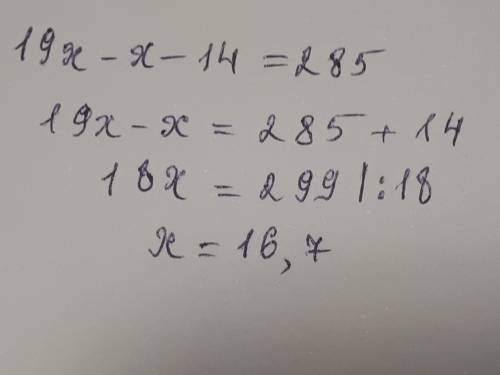 19x - x - 14 = 285
19x - x = 285 + 14
18x = 299 | : 18
x = 16,7